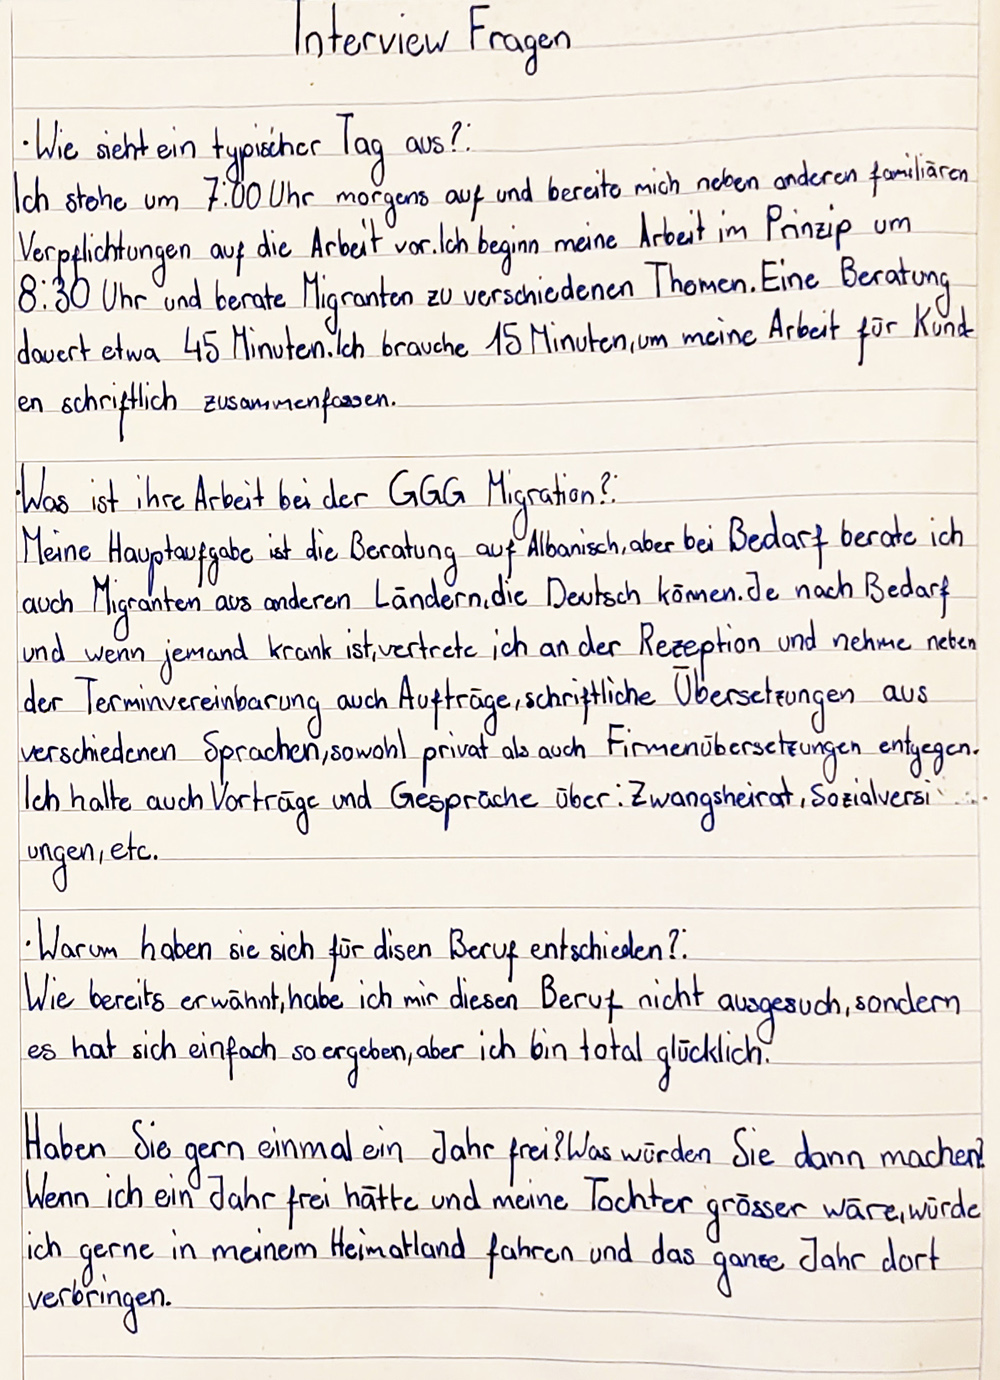 Interview Fragen
· Wie sieht ein typischer Tag aus?:
Ich stehe um 7:00 Uhr morgens auf und bereite mich neben anderen familiären
Verpflichtungen auf die Arbeit vor. Ich beginn meine Arbeit im Prinzip um
8:30 Uhr und berate Migranten zu verschiedenen Themen. Eine Beratung
dauert etwa 45 Minuten. Ich brauche 15 Minuten, um meine Arbeit für Kund
en schriftlich zusammenfassen.
· Was ist ihre Arbeit bei der GGG Migration?:
Meine Hauptaufgabe ist die Beratung auf Albanisch, aber bei Bedarf berate ich
auch Migranten aus anderen Ländern, die Deutsch können. Je nach Bedarf
und wenn jemand krank ist, vertrete ich an der Rezeption und nehme neben
der Terminvereinbarung auch Aufträge, schriftliche Übersetzungen aus
verschiedenen Sprachen, sowohl privat als auch Firmenübersetzungen entgegen.
Ich halte auch Vorträge und Gespräche über: Zwangsheirat, Sozialversi
ungen, etc.
· Warum haben sie sich für disen Beruf entschieden?:
Wie bereits erwähnt, habe ich mir diesen Beruf nicht ausgesuch, sondern
es hat sich einfach so ergeben, aber ich bin total glücklich.
Haben Sie gern einmal ein Jahr frei? Was würden Sie dann machen?
Wenn ich ein Jahr frei hätte und meine Tochter grösser wäre, würde
ich gerne in meinem Heimatland fahren und das ganze Jahr dort
verbringen.